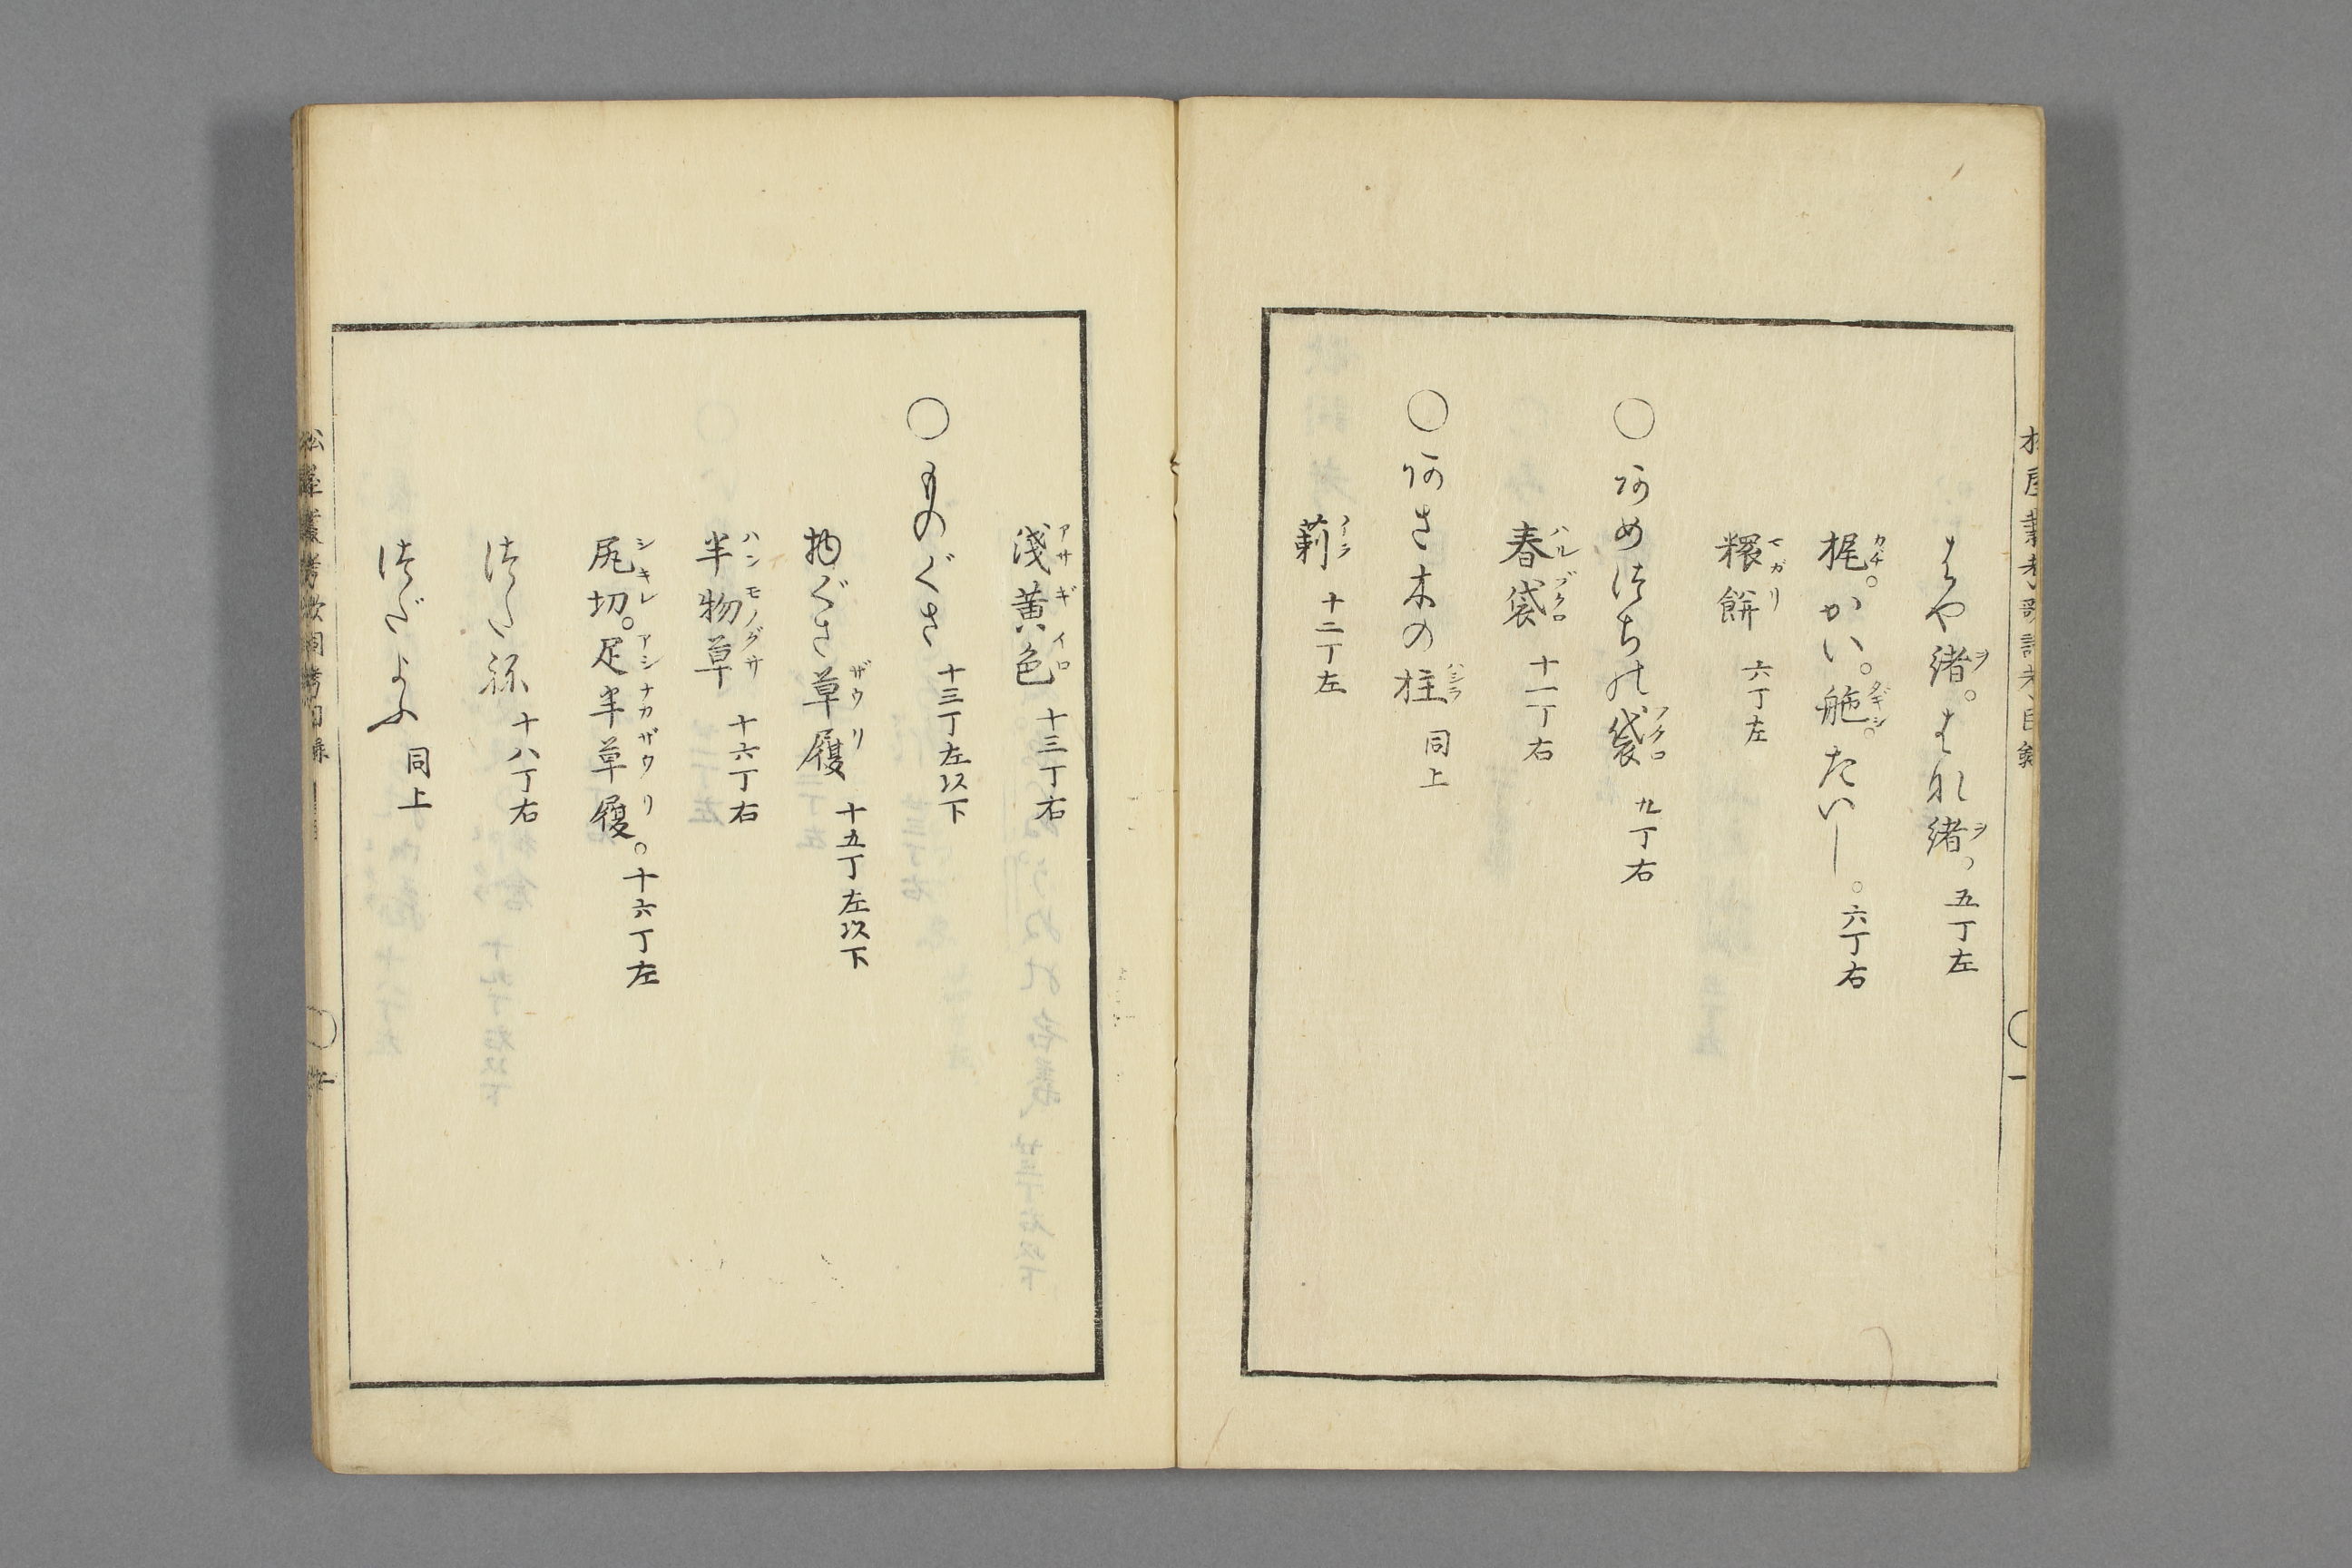 はや緒。はれ緒。五丁左
梶。かい。䑨。たいし。六丁右
糫餅 六丁左
○あめつちの袋 九丁右
春袋 十一丁右
○あさ木の柱 同上
十二丁左
淺黄色 十三丁右
○ものぐさ 十三丁左以下
物ぐさ草履 十五丁左以下
半物草 十六丁右
尻切。足半草履。十六丁左
十八丁右
同上
松屋叢考歌詞考目錄